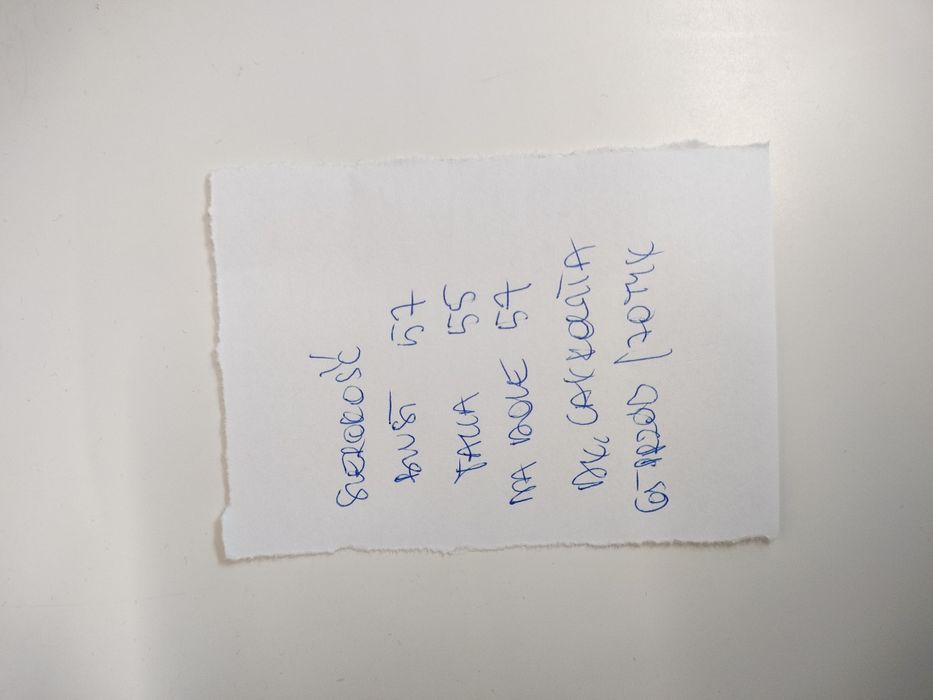 SZEROKOŚĆ
BIUST 57
TALIA 55
NA DOLE 57
DŁ, CAŁKOWITA
PRZÓD / TYŁ